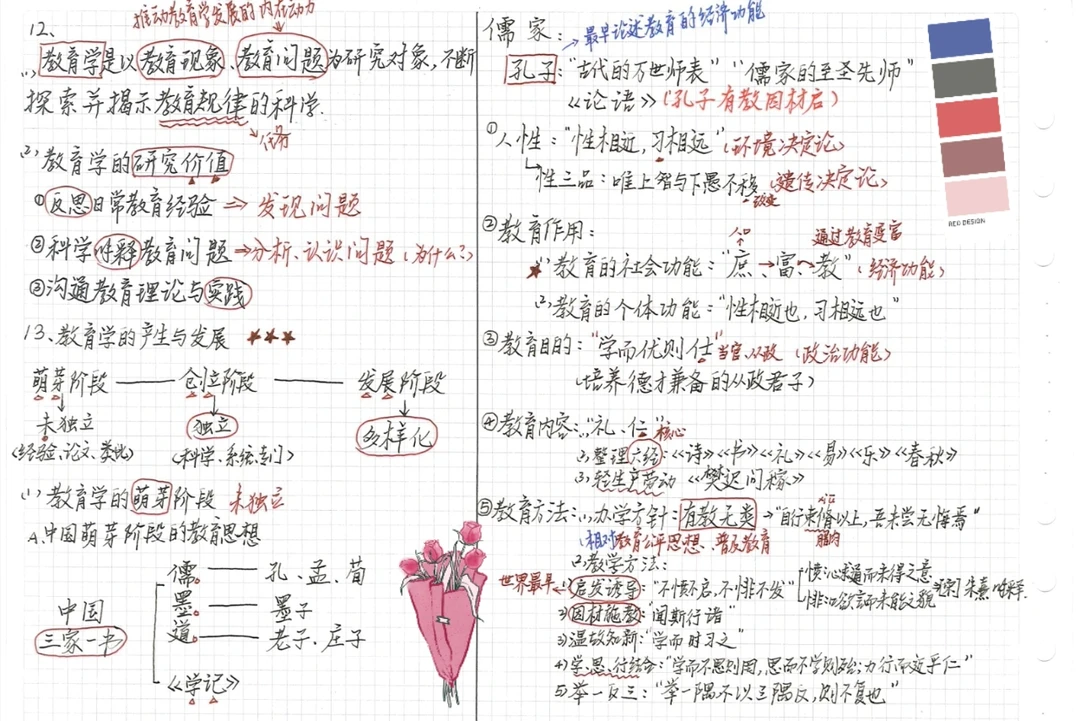 推动教育学发展的内在动力
12、
(1)教育学是以教育现象、教育问题为研究对象，不断
探索并揭示教育规律的科学.
任务
(2)教育学的研究价值
①反思日常教育经验⇒发现问题
②科学解释教育问题⇒分析、认识问题（为什么？）
③沟通教育理论与实践
13、教育学的产生与发展 ★★★
萌芽阶段——创立阶段——发展阶段
未独立 独立 多样化
（经验、论文、类比）（科学、系统、专门）
(1)教育学的萌芽阶段 未独立
A.中国萌芽阶段的教育思想
儒——孔、孟、荀
墨——墨子
道——老子、庄子
中国
三家一书
《学记》
儒家：→最早论述教育的经济功能
孔子："古代的万世师表" "儒家的至圣先师"
《论语》（孔子有教因材启）
①人性："性相近，习相远"（环境决定论）
性三品：唯上智与下愚不移（遗传决定论）
改变
②教育作用：
人口 通过教育变富
★(1)教育的社会功能："庶→富→教"（经济功能）
(2)教育的个体功能："性相近也，习相远也"
③教育目的："学而优则仕"当官、从政（政治功能）
（培养德才兼备的从政君子）
④教育内容：(1)"礼、仁"核心
(2)整理六经：《诗》《书》《礼》《易》《乐》《春秋》
(3)轻生产劳动《樊迟问稼》
⑤教育方法：(1)办学方针：有教无类→"自行束脩以上，吾未尝无悔焉"
腊肉
（相对教育公平思想、普及教育
(2)教学方法：
世界最早←1)启发诱导："不愤不启，不悱不发"
愤：心求通而未得之意
悱：口欲言而未能之貌
朱熹
2)因材施教："闻斯行诸"
3)温故知新："学而时习之"
4)学、思、行结合："学而不思则罔，思而不学则殆；力行而近乎仁"
5)举一反三："举一隅不以三隅反，则不复也"
RED DESIGN